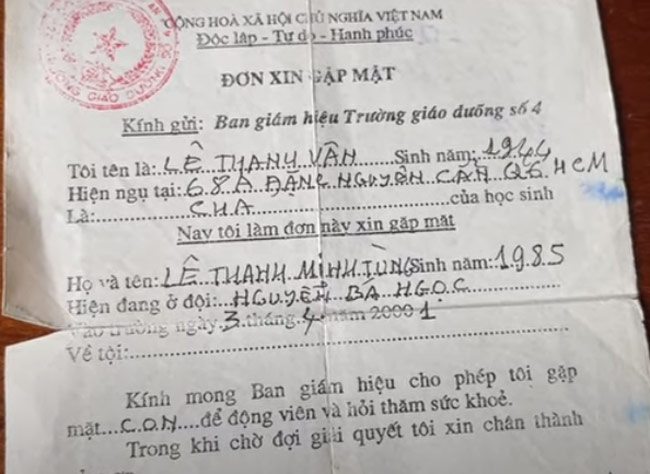 CỘNG HOÀ XÃ HỘI CHỦ NGHĨA VIỆT NAM
Độc lập - Tự do - Hạnh phúc
ĐƠN XIN GẶP MẶT
Kính gửi: Ban giám hiệu Trường giáo dưỡng số 4
Tôi tên là: LÊ THANH VÂN Sinh năm: 1944
Hiện ngụ tại: 68A ĐẶNG NGUYÊN CẨN Q6 HCM
Là: CHA của học sinh
Nay tôi làm đơn này xin gặp mặt
Họ và tên: LÊ THANH MINH TÙNG Sinh năm: 1985
Hiện đang ở đội: NGUYỄN BÁ NGỌC
Vào trường ngày 3 tháng 4 năm 2000 1
Về tội:
Kính mong Ban giám hiệu cho phép tôi gặp
mặt CON để động viên và hỏi thăm sức khoẻ.
Trong khi chờ đợi giải quyết tôi xin chân thành